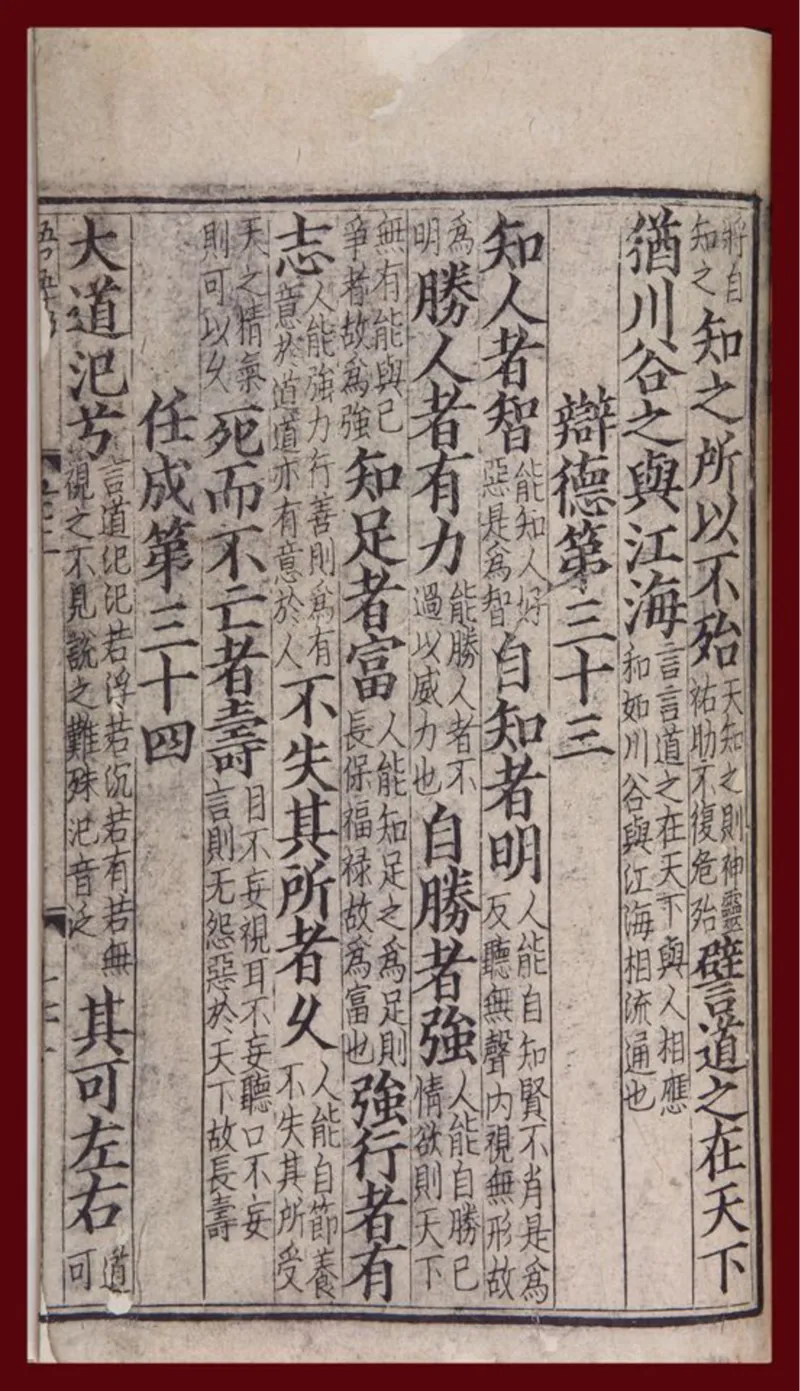 將自知之知之所以不殆天知之則神靈祐助不復危殆譬道之在天下
猶川谷之與江海言言道之在天下與人相應和如川谷與江海相流通也
辯德第三十三
知人者智能知人好惡是為智自知者明人能自知賢不肖是為反聽無聲內視無形故
為明勝人者有力能勝人者不過以威力也自勝者強人能自勝已情欲則天下
無有能與已爭者故為強知足者富人能知足之為足則長保福祿故為富也強行者有
志人能強力行善則為有意於道道亦有意於人不失其所者乆人能自節養不失其所受
天之精氣則可以乆死而不亡者壽目不妄視耳不妄聽口不妄言則无怨惡於天下故長壽
任成第三十四
大道氾兮言道氾氾若浮若沉若有若無視之不見說之難殊氾音泛其可左右道可